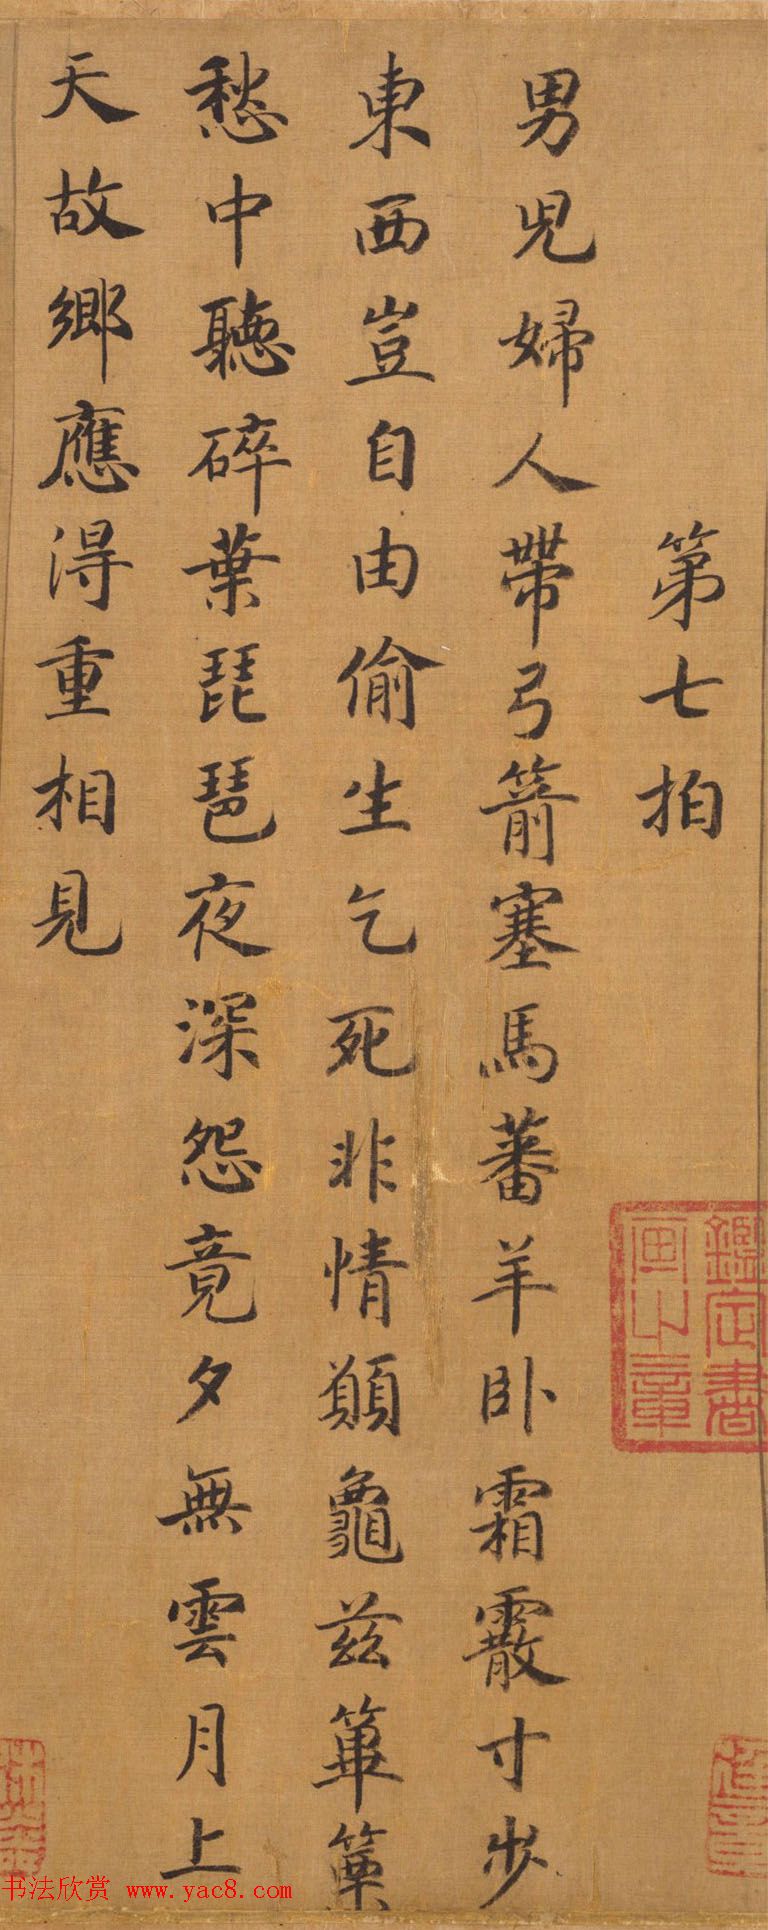 第七拍
男兒婦人帶弓箭塞馬蕃羊臥霜霰寸步
東西豈自由偷生乞死非情願龜茲篳篥
愁中聽碎葉琵琶夜深怨竟夕無雲月上
天故鄉應得重相見
鑑定書
画之章
书法欣赏 www.yac8.com